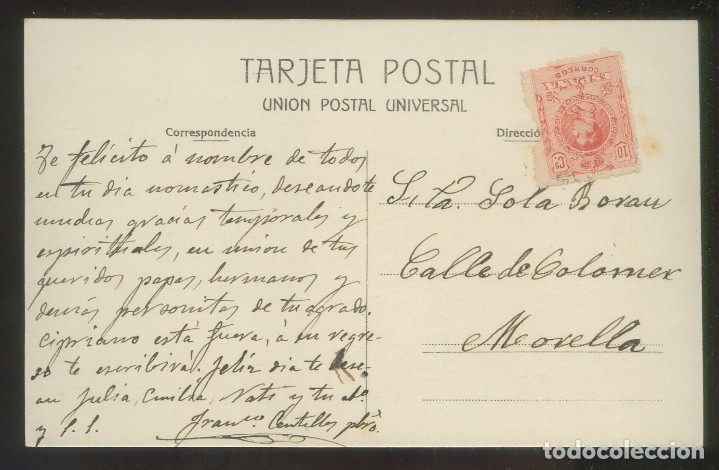 TARJETA POSTAL
UNION POSTAL UNIVERSAL
Correspondencia
Direcció
CORREOS
10 Cs
Te felicito á nombre de todos
en tu dia nomastico, deseandote
muchas gracias temporales y
espirituales, en union de tus
queridos papas, hermanos y
demás personitas de tu agrado.
Cipriano está fuera, á su regre-
so te escribirá. Feliz dia te dese-
an Julia, Emilia, Nati y tu afo.
y S. S. Franco. Centelles pbro.
Srta. Lola Borau
Calle de Colomer
Morella
todocoleccion
todocoleccion.net